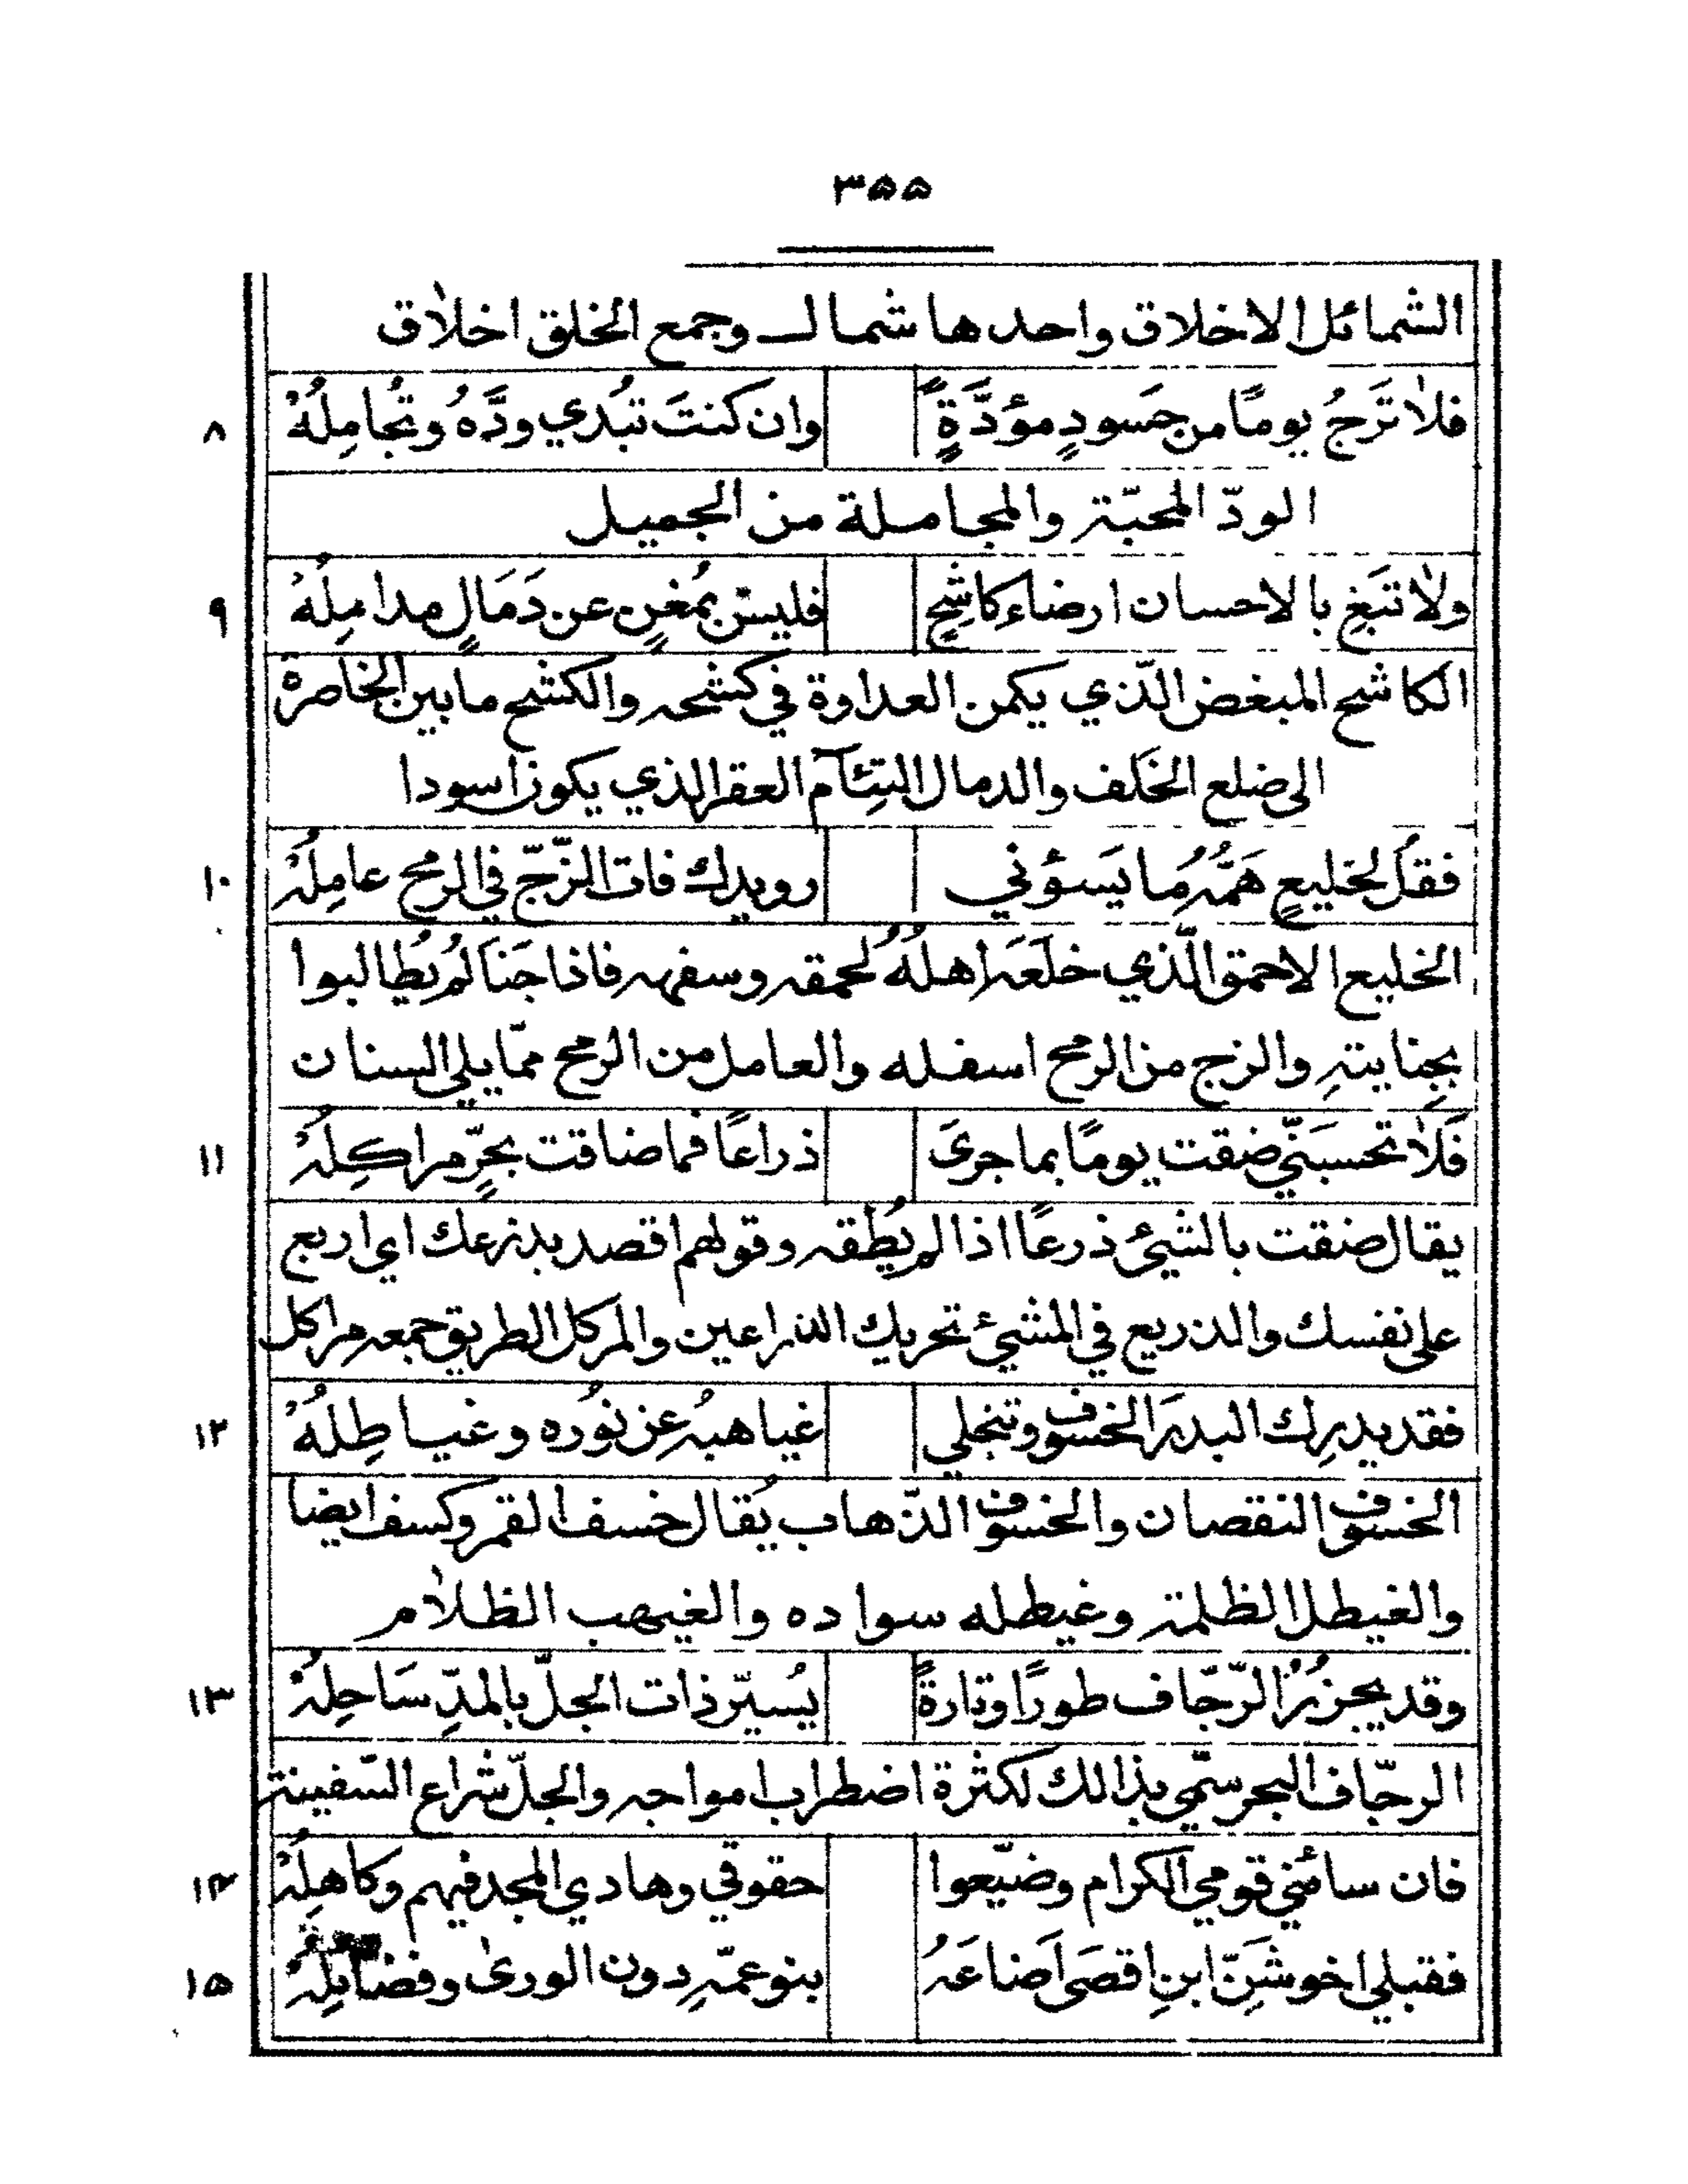 ٣٥٥
الشمائل الاخلاق واحدها شمال وجمع الخلق اخلاق
فلا تَرَجُ يومًا من حَسودٍ مؤدَّةً وان كنتَ تبُدي ودَّهُ وتجُامِلُهْ ٨
الودّ المحبّة والمجاملة من الجميل
ولا تبَغِ بالاحسان ارضاء كاشِحٍ فليس بمُغنٍ عن دَمَالٍ مدامِلُهْ ٩
الكاشح المبغض الّذي يكمن العداوة في كشحه والكشح مابين الخاصرة
الى ضلع الخَلف والدمال التئآم العقر الذي يكون اسودا
فقل لخليعٍ هَمُّهُ مَا يَسؤني رويدك فات الزّجّ في الرمح عامِلُهْ ١٠
الخليع الاحمق الّذي خلَعَه اهلُهُ لحمقه وسفهه فاذا جَنَا لم يُطالبوا
بِجنايتهِ والزج من الرمح اسفله والعامل من الرمح ممّا يلي السنان
فَلا تحسبَنّي ضقت يومًا بما جرىَ ذراعًا فما ضاقت بحِرٍّ مراكِلُهْ ١١
يقال ضقت بالشيئ ذرعًا اذا لم يُطقه وقولهم اقصد بذرعك اي اربع
على نفسك والذريع في المشيئ تحريك الذراعين والمركل الطريق جمعه مراكل
فقد يدرِك البدرَ الخسوف وتنجلي غياهبُه عن نوُره وغياطِلُهْ ١٢
الخسوف النقصان والخسوف الذّهاب يُقال خسف القمر وكسف ايضا
والغيطل الظلمة وغيطله سواده والغيهب الظلام
وقد يجزُرُ الرّجّاف طورًا وتارةً يُسيّر ذات الجلّ بالمدِّ سَاحِلُهْ ١٣
الرجّاف البحر سمّي بذالك لكثرة اضطراب امواجه والجلّ شراع السّفينة
فان سائني قومي الكرام وضيّعوا حقوقي وهادي المجد فيهم وكاهِلُهْ ١٤
فقبلي اخو شَنِّ ابنِ اقصَى اَضاعَهُ بنو عمّهِ دون الورىٰ وفضآئِلُهْ ١٥